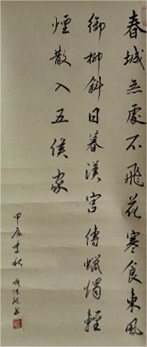 春城無處不飛花寒食東風
御柳斜日暮漢宮傳蠟燭輕
煙散入五侯家
甲辰季秋